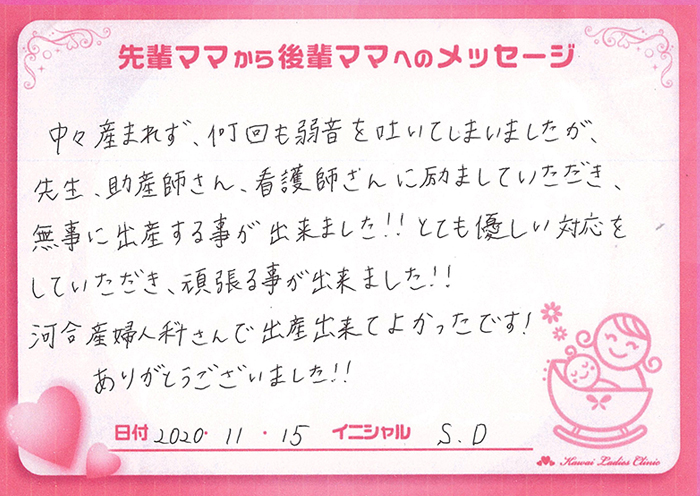 先輩ママから後輩ママへのメッセージ
中々産まれず、何回も弱音を吐いてしまいましたが、
先生、助産師さん、看護師さんに励ましていただき、
無事に出産する事が出来ました!!とても優しい対応を
していただき、頑張る事が出来ました!!
河合産婦人科さんで出産出来てよかったです!
ありがとうございました!!
日付 2020・11・15 イニシャル S.D
Kawai Ladies Clinic